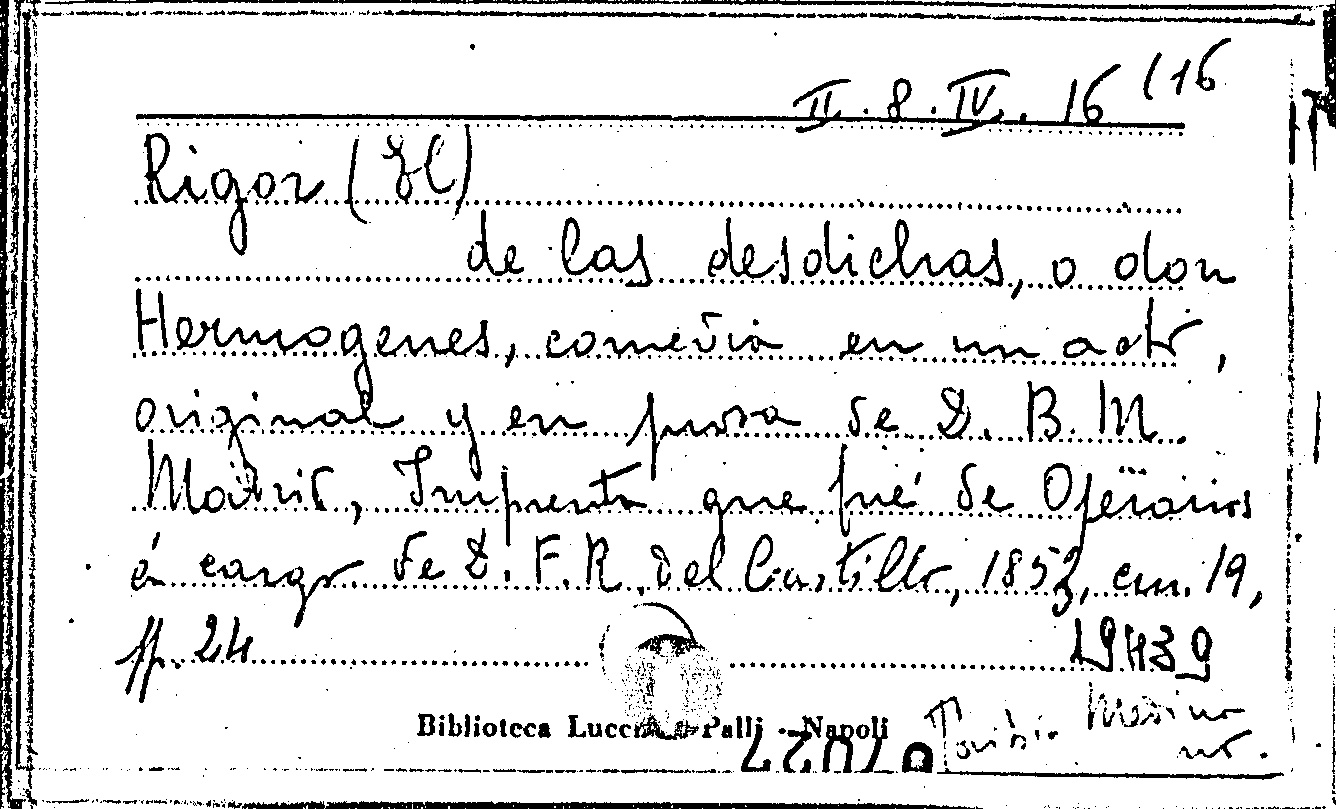 II. 8. IV. 16 (16
Rigor (El)
de las desdichas, o don
Hermogenes, comedia en un acto,
original y en prosa de D. B. M.
Madrid, Imprenta que fué de Operarios
á cargo de D. F. R. del Castillo, 1853, cm. 19,
pp. 24
19439
Biblioteca Lucchesi-Palli - Napoli